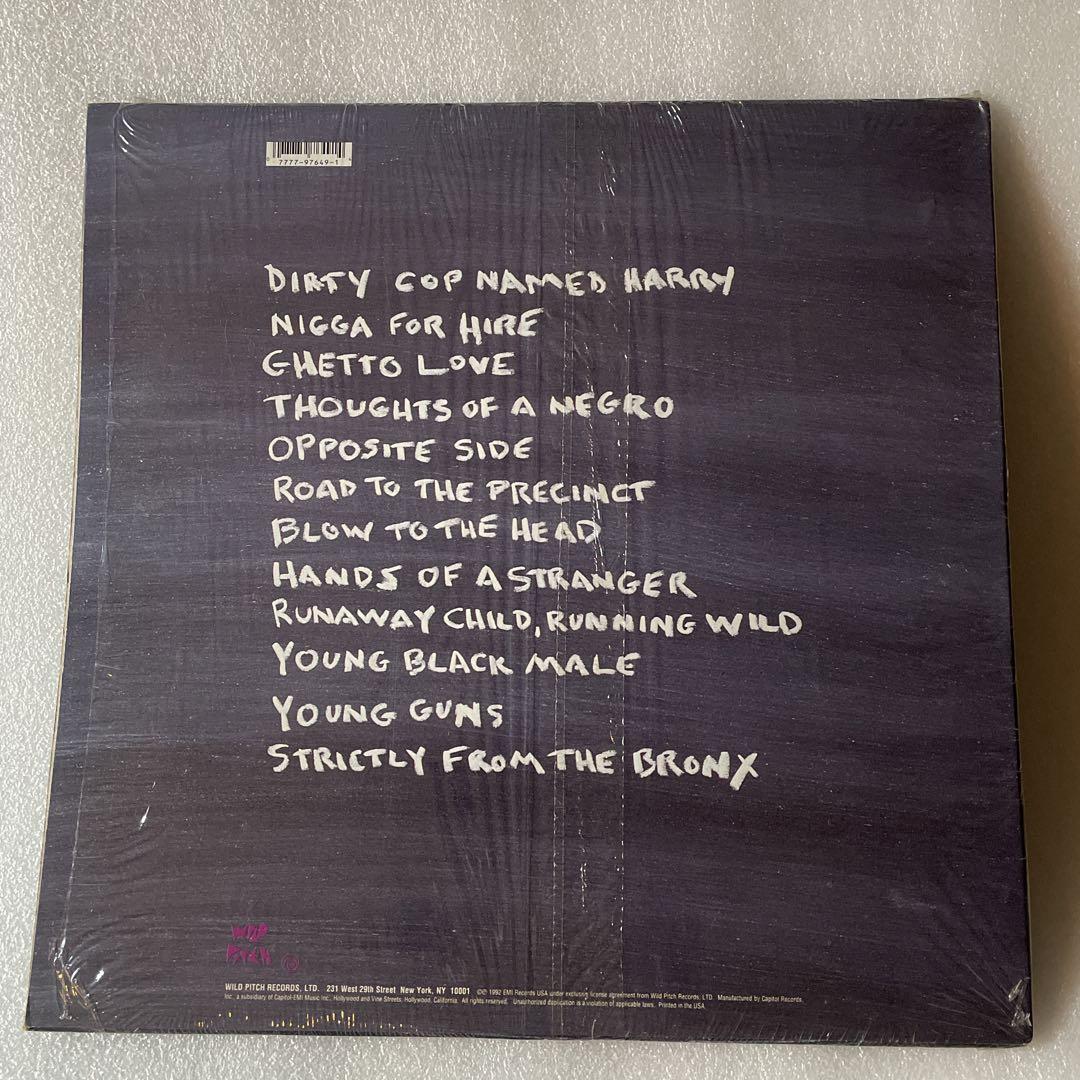 0 7777-97649-1
DIRTY COP NAMED HARRY
NIGGA FOR HIRE
GHETTO LOVE
THOUGHTS OF A NEGRO
OPPOSITE SIDE
ROAD TO THE PRECINCT
BLOW TO THE HEAD
HANDS OF A STRANGER
RUNAWAY CHILD, RUNNING WILD
YOUNG BLACK MALE
YOUNG GUNS
STRICTLY FROM THE BRONX
WILD
PITCH
WILD PITCH RECORDS, LTD. 231 West 29th Street New York, NY 10001 ©℗ 1992 EMI Records USA under exclusive license agreement from Wild Pitch Records, LTD. Manufactured by Capitol Records,
Inc., a subsidiary of Capitol-EMI Music Inc., Hollywood and Vine Streets, Hollywood, California. All rights reserved. Unauthorized duplication is a violation of applicable laws. Printed in the USA.